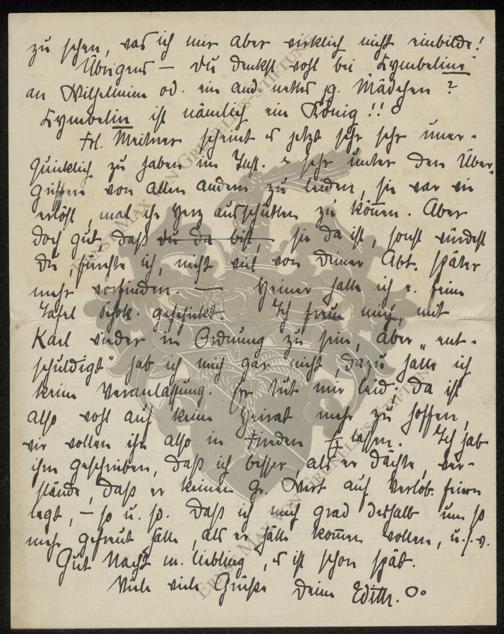 zu sehen, was ich mir aber wirklich nicht einbilde!
Übrigens — Du denkst wohl bei Cymbeline
an Wilhelmine od. ein and. nettes jg. Mädchen?
Cymbelin ist nämlich ein König!!
Frl. Meitner scheint es jetzt sehr sehr uner-
quicklich zu haben im Inst. & sehr unter den Über-
griffen von allen andern zu leiden, sie war wie
erlöst, mal ihr Herz ausschütten zu können. Aber
doch gut, daß sie da ist, sonst würdest
Du, fürchte ich, nicht viel von Deiner Abt. später
mehr vorfinden. — Heiner hatte ich e. feine
Tafel Schok. geschickt. Ich freue mich, mit
Karl wieder in Ordnung zu sein, aber „ent-
schuldigt“ hab ich mich gar nicht, dazu hatte ich
keine Veranlassung. Er tut mir leid. Da ist
also wohl auf keine Heirat mehr zu hoffen,
wir wollen ihn also in Frieden lassen. Ich hab
ihm geschrieben, daß ich besser, als er dächte, ver-
stände, daß er keinen gr. Wert auf Verlob. feiern
legt, — so u. so. Daß ich mich grad deshalb um so
mehr gefreut hätte, als er hätte kommen wollen, u.s.w.
Gut Nacht m. Liebling, es ist schon spät.
Viele viele Grüße Deine Edith.